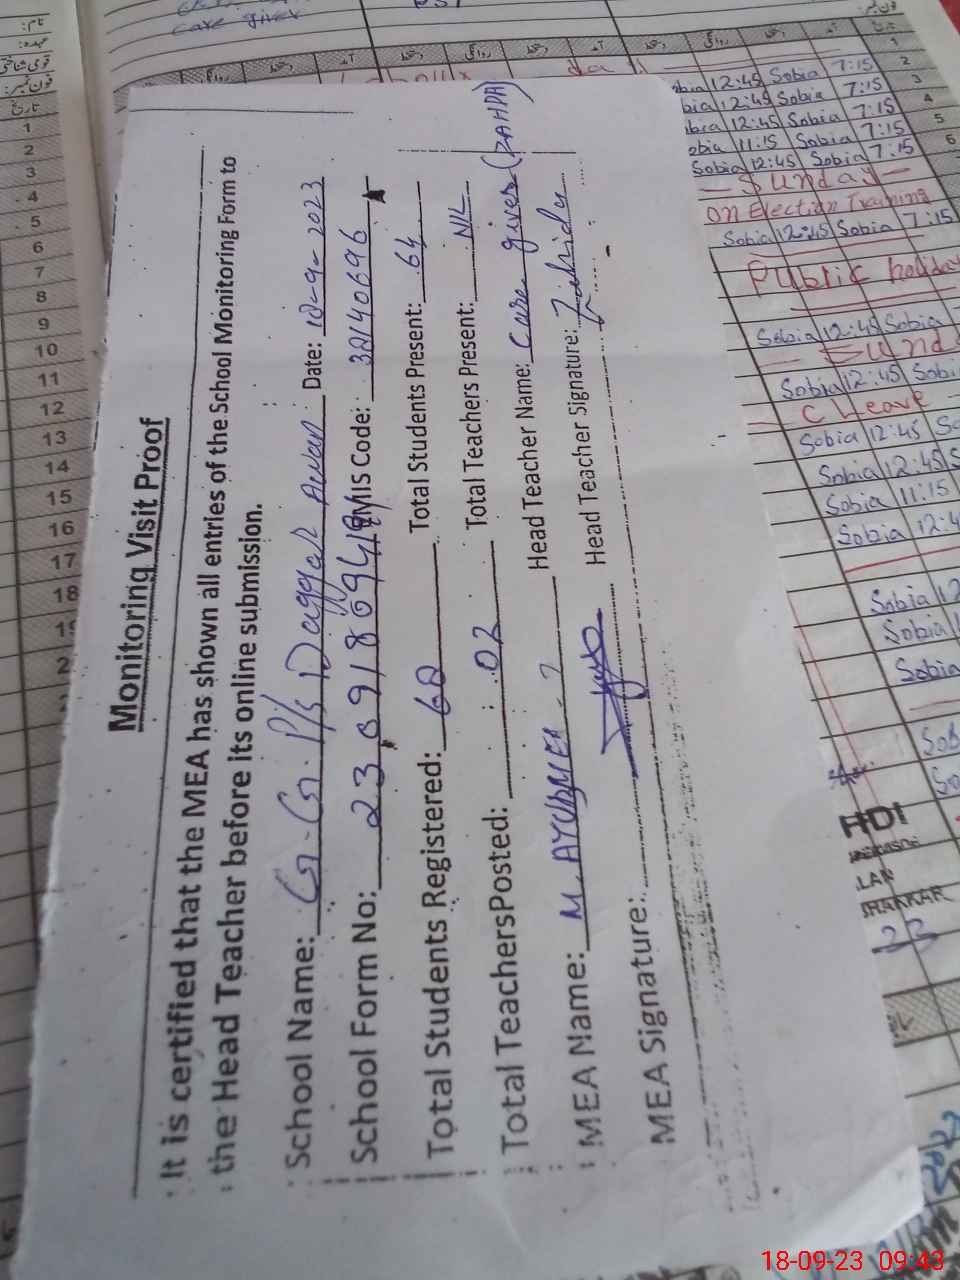 Monitoring Visit Proof
It is certified that the MEA has shown all entries of the School Monitoring Form to
the Head Teacher before its online submission.
School Name: G.G.P/S Dagger Awan Date: 18-9-2023
School Form No: EMIS Code: 32140696
Total Students Registered: Total Students Present: 64
Total TeachersPosted: 02 Total Teachers Present: NIL
MEA Name: M. AYUB MEA-7 Head Teacher Name: Care giver
MEA Signature: Head Teacher Signature: Zahida
care giver
تاریخ
1
2
3
4
5
6
7
8
9
10
11
12
13
14
15
16
17
18
Sobia 12:45 Sobia 7:15
Sobia 12:45 Sobia 7:15
Sobia 12:45 Sobia 7:15
Sobia 11:15 Sobia 7:15
Sobia 12:45 Sobia 7:15
Sunday
On Election Training
Sobia 12:45 Sobia 7:15
Public holiday
Sobia 12:45 Sobia
Sund
Sobia 12:45 Sobi
C Leave
Sobia 12:45 So
Sobia 12:45 S
Sobia 11:15
Sobia 12:4
Sobia 12
Sobia
Sobia
Sob
So
HDI
LAN
23
1
2
3
4
5
6
18-09-23 09:43